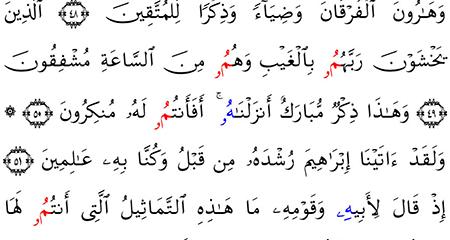 وَهَٰرُونَ ٱلْفُرْقَانَ وَضِيَآءً وَذِكْرًا لِّلْمُتَّقِينَ ٤٨ ٱلَّذِينَ
يَخْشَوْنَ رَبَّهُمُۥ بِٱلْغَيْبِ وَهُمُۥ مِنَ ٱلسَّاعَةِ مُشْفِقُونَ
٤٩ وَهَٰذَا ذِكْرٌ مُّبَارَكٌ أَنزَلْنَٰهُۥ ۚ أَفَأَنتُمُۥ لَهُۥ مُنكِرُونَ ٥٠ ۞
وَلَقَدْ ءَاتَيْنَآ إِبْرَٰهِيمَ رُشْدَهُۥ مِن قَبْلُ وَكُنَّا بِهِۦ عَٰلِمِينَ ٥١
إِذْ قَالَ لِأَبِيهِۦ وَقَوْمِهِۦ مَا هَٰذِهِ ٱلتَّمَاثِيلُ ٱلَّتِىٓ أَنتُمُۥ لَهَا